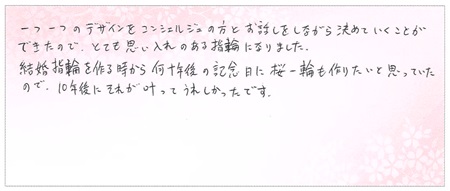 一つ一つのデザインをコンシェルジュの方とお話しをしながら決めていくことが
できたので、とても思い入れのある指輪になりました。
結婚指輪を作る時から何十年後の記念日に桜一輪も作りたいと思っていた
ので、10年後にそれが叶ってうれしかったです。